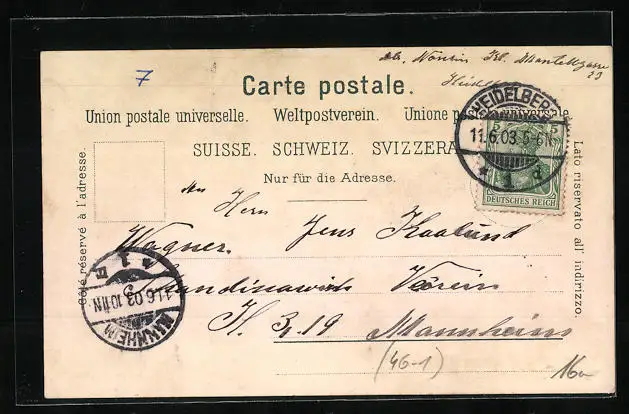 7
Mantelgasse
23
Carte postale.
Union postale universelle. Weltpostverein. Unione postale universale.
SUISSE. SCHWEIZ. SVIZZERA
Nur für die Adresse.
Côté réservé à l'adresse.
Lato riservato all' indirizzo.
HEIDELBERG
11.6.03. 5-6N.
* 1 d
5 5
DEUTSCHES REICH
Herrn Jens Kaalund
Wagner
Skandinawisk Verein
H. 3, 19 Mannheim
MANNHEIM
11.6.03. 10-11N
(46-1)
16a